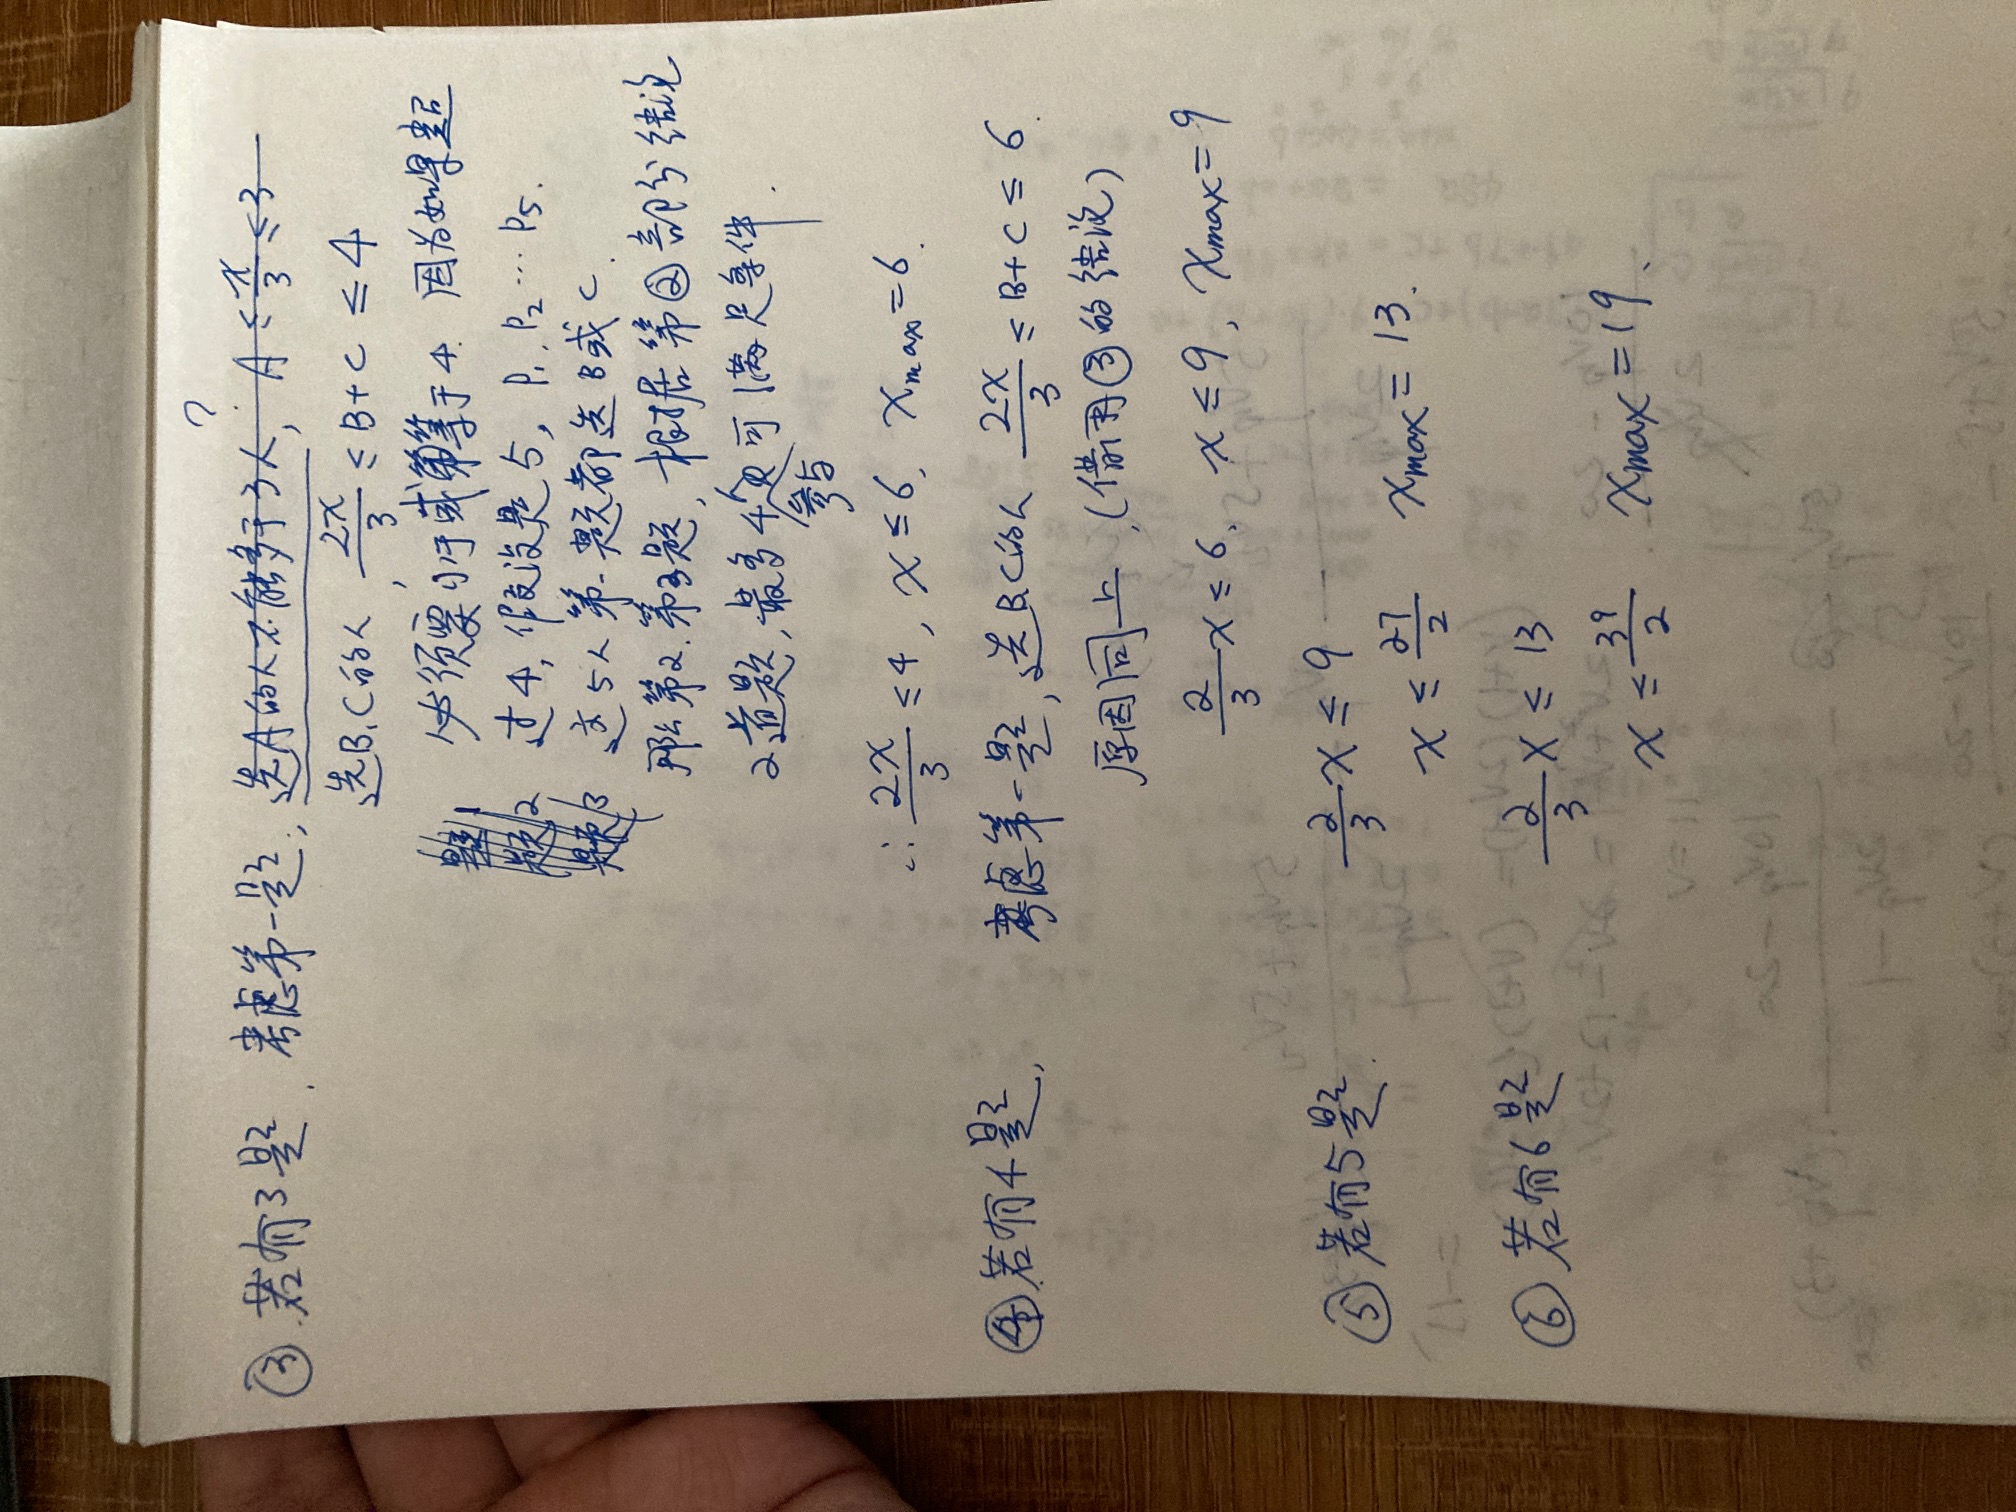 ③ 若有3题. 考虑第一题, 选A的人不能多于3人, A ≤ x/3 ≤ 3
选B, C的人, 2x/3 ≤ B + C ≤ 4
必须要小于或等于4. 因为如果超
过4, 假设是5, P₁ P₂ … P₅.
这5人第一题都选B或C.
那么第2.第3题, 根据第②部分结论
2道题, 最多4人参与可满足条件.
∴ 2x/3 ≤ 4, x ≤ 6, xmax = 6.
④ 若有4题, 考虑第一题, 选B,C的人 2x/3 ≤ B + C ≤ 6.
原因同上. (借用③的结论)
2/3 x ≤ 6, x ≤ 9, xmax = 9
⑤ 若有5题. 2/3 x ≤ 9
x ≤ 27/2 xmax = 13.
⑥ 若有6题 2/3 x ≤ 13
x ≤ 39/2 xmax = 19.